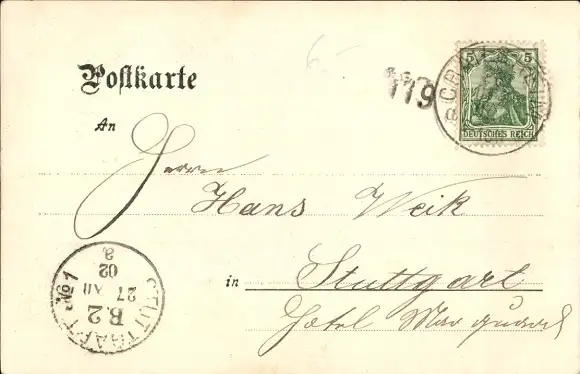 Postkarte
119
5 5
DEUTSCHES REICH
An
Herrn
Hans Weik
in Stuttgart
Hotel Marquard
STUTTGART No 1
B.2
27 VII
02
8